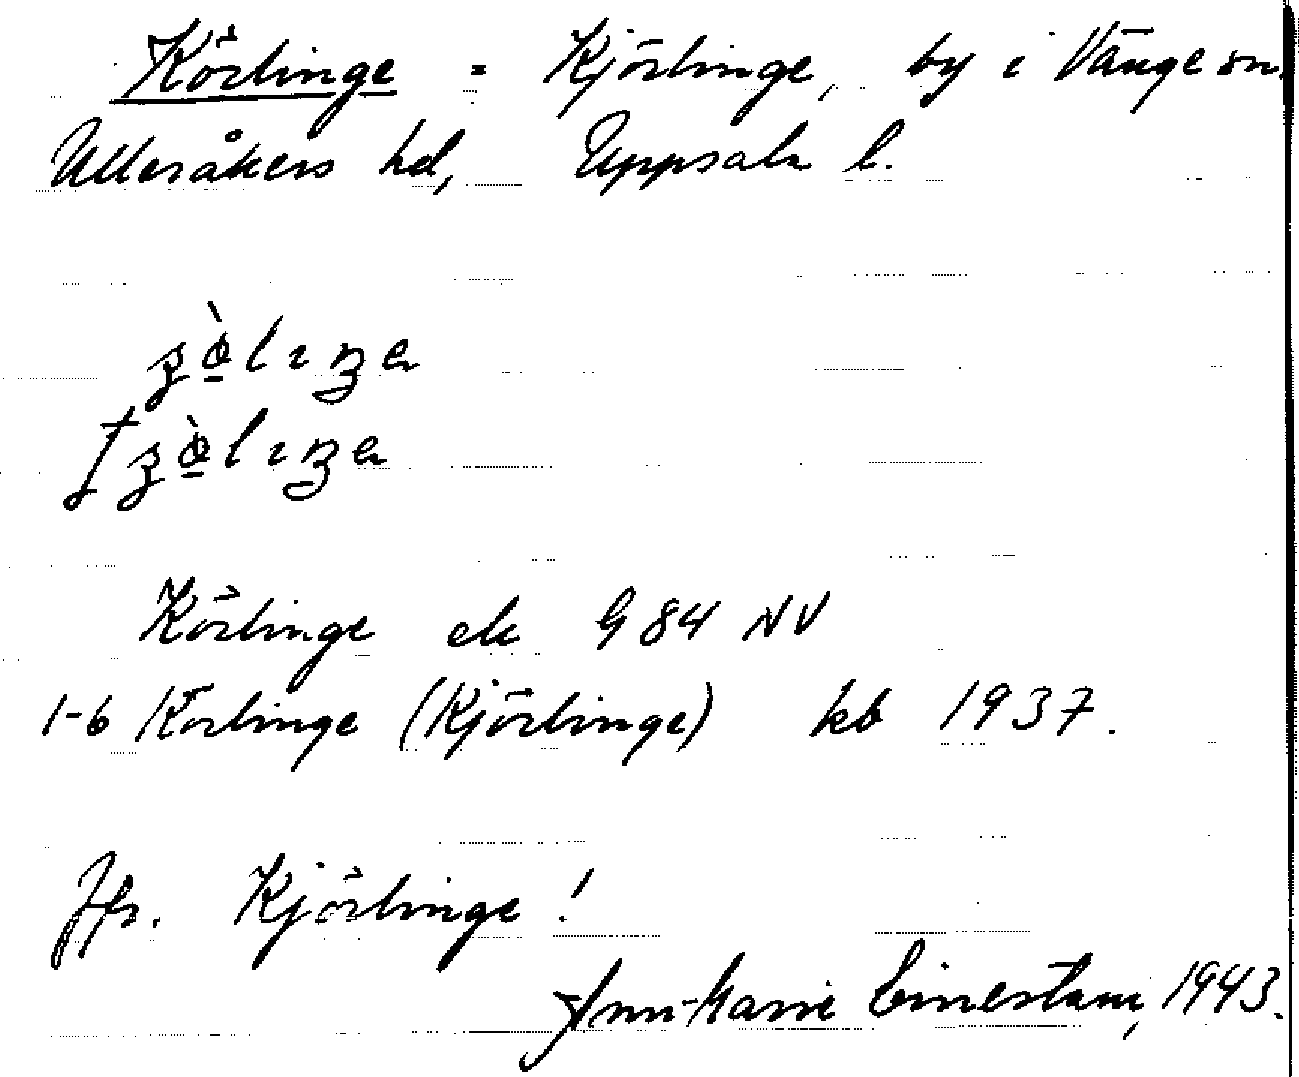 Körlinge = Kjörlinge, by i Vänge sn.
Ulleråkers hd, Uppsala l.
Körlinge ek G 84 NV
1-6 Körlinge (Kjörlinge) kb 1937.
Jfr. Kjörlinge!
Ann-Marie Einestam, 1943.